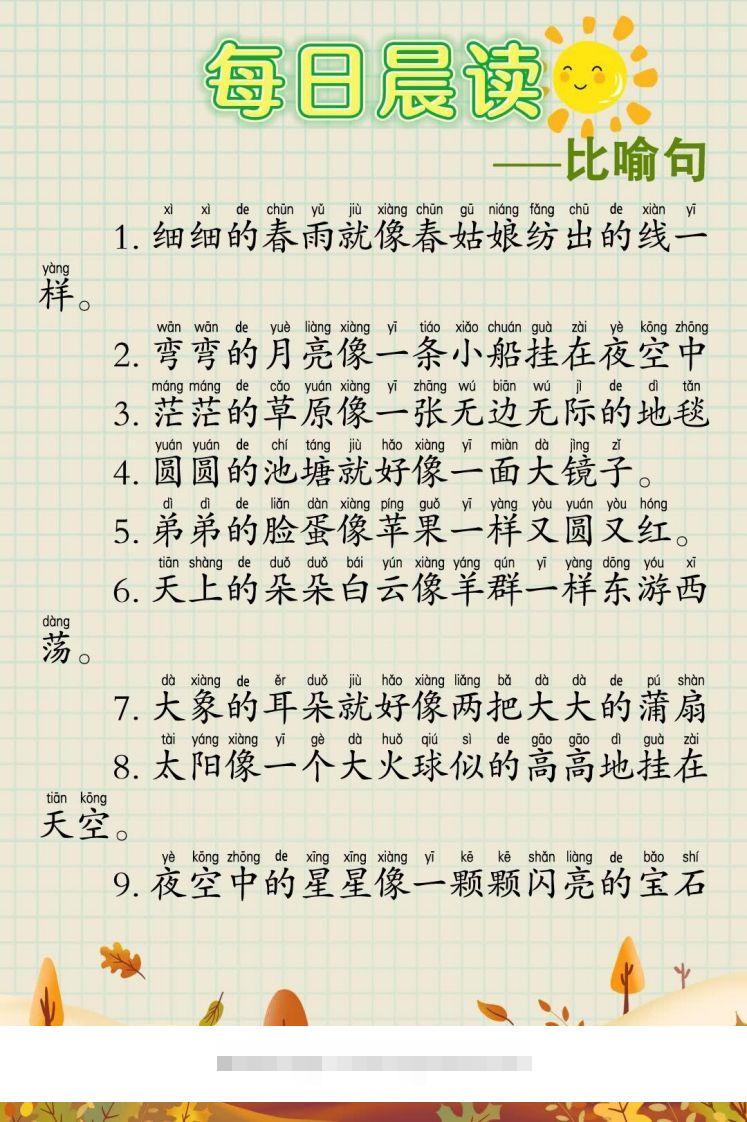 每日晨读
——比喻句
xì xì de chūn yǔ jiù xiàng chūn gū niáng fǎng chū de xiàn yī
1. 细细的春雨就像春姑娘纺出的线一
yàng
样。
wān wān de yuè liàng xiàng yī tiáo xiǎo chuán guà zài yè kōng zhōng
2. 弯弯的月亮像一条小船挂在夜空中
máng máng de cǎo yuán xiàng yī zhāng wú biān wú jì de dì tǎn
3. 茫茫的草原像一张无边无际的地毯
yuán yuán de chí táng jiù hǎo xiàng yī miàn dà jìng zǐ
4. 圆圆的池塘就好像一面大镜子。
dì dì de liǎn dàn xiàng píng guǒ yī yàng yòu yuán yòu hóng
5. 弟弟的脸蛋像苹果一样又圆又红。
tiān shàng de duǒ duǒ bái yún xiàng yáng qún yī yàng dōng yóu xī
6. 天上的朵朵白云像羊群一样东游西
dàng
荡。
dà xiàng de ěr duǒ jiù hǎo xiàng liǎng bǎ dà dà de pú shàn
7. 大象的耳朵就好像两把大大的蒲扇
tài yáng xiàng yī gè dà huǒ qiú sì de gāo gāo dì guà zài
8. 太阳像一个大火球似的高高地挂在
tiān kōng
天空。
yè kōng zhōng de xīng xīng xiàng yī kē kē shǎn liàng de bǎo shí
9. 夜空中的星星像一颗颗闪亮的宝石